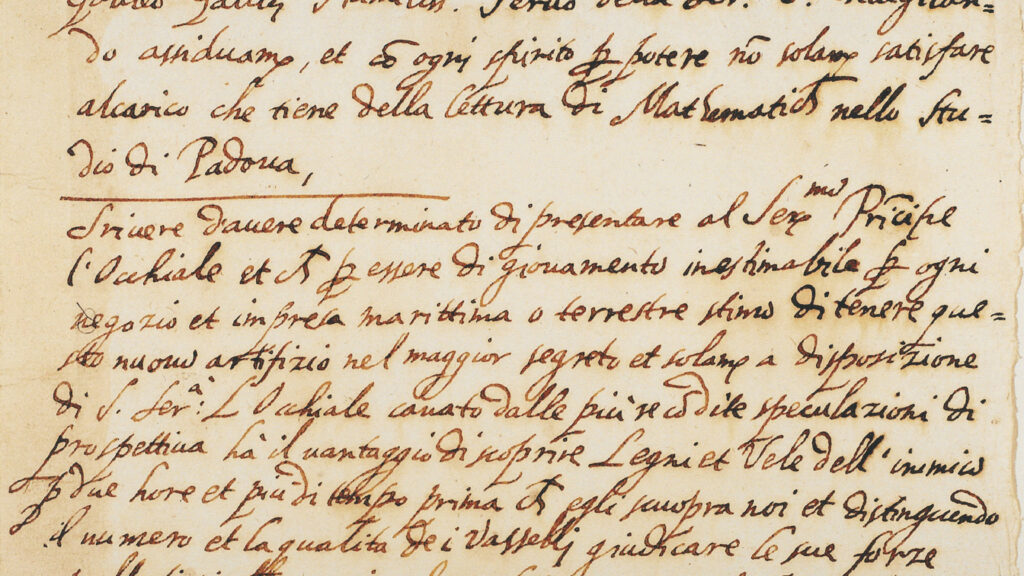 Galileo Galilei Humiliss. Servo della Ser. V. invigilan=
do assiduam, et cō ogni spirito p potere nō solam satisfare
alcarico che tiene della lettura di Mathematich nello stu=
dio di Padova,
Srivere d'avere determinato di presentare al Sermo Prīcipe
l'Occhiale et ch p essere di giovamento inestimabile p ogni
negozio et impresa marittima o terrestre stimo di tenere que=
sto nuovo artifizio nel maggior segreto et solam a disposizione
di S. Sera: L'Occhiale cavato dalle più recōdite speculazioni di
prospettiva hà il vantaggio di scoprire Legni et Vele dell' inimico
p due hore et più di tempo prima ch egli scuopra noi et distinguendo
il numero et la qualita de i Vasselli giudicare le sue forze